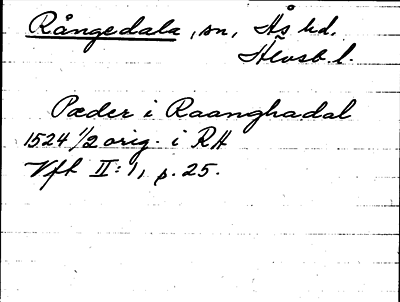 Rångedala, sn, Ås hd.
Älvsb. l.
Pæder i Raanghadal
1524 1/2 orig. i RA
Vft II:1, p. 25.